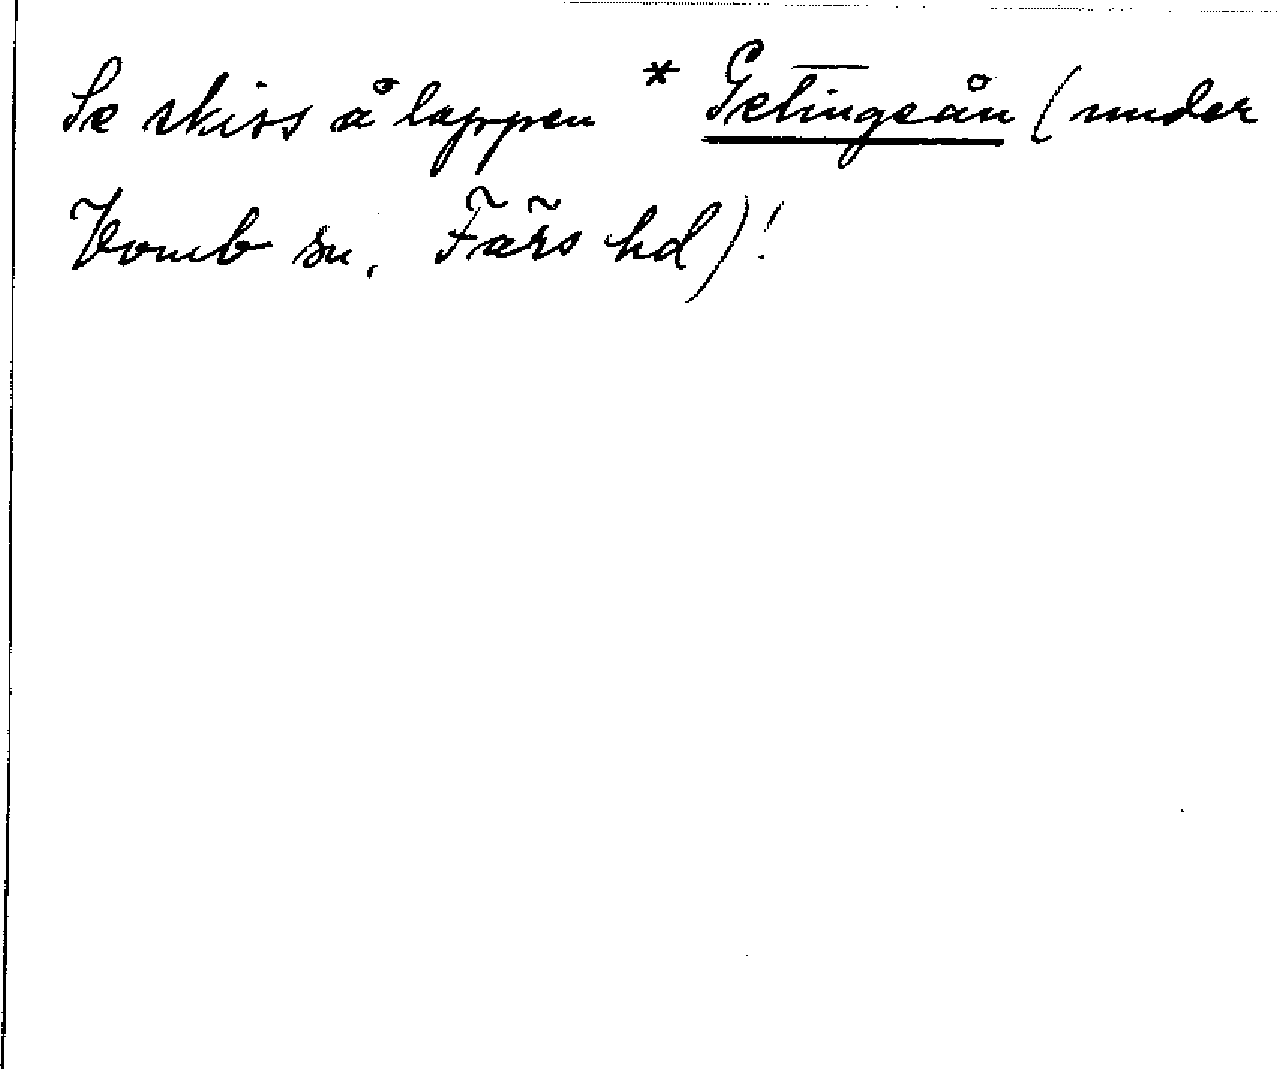 Se skiss å lappen * Getingeån (under
Vomb sn, Färs hd)!